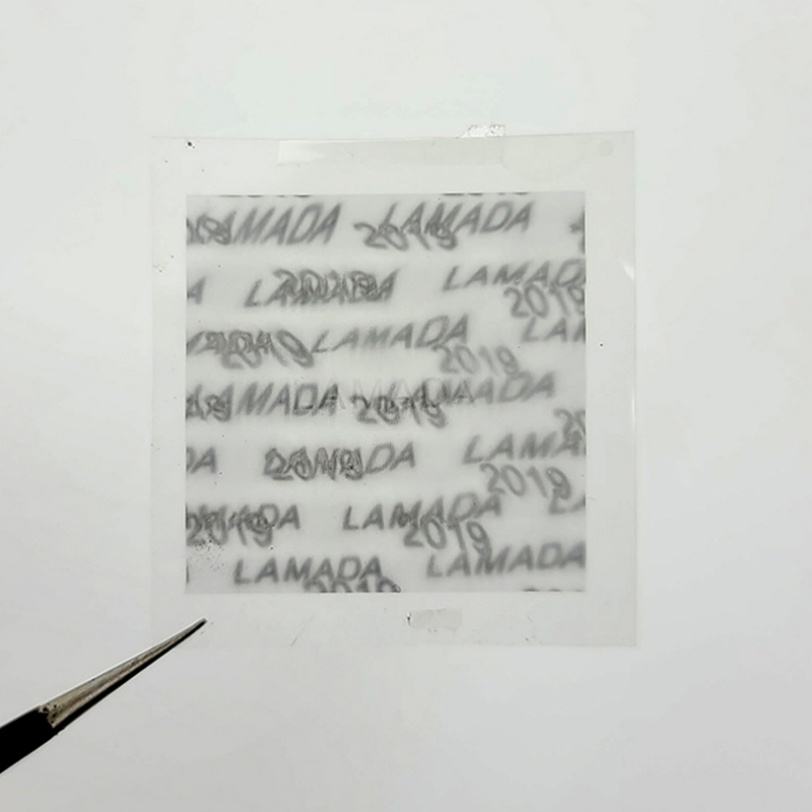 LAMADA LAMADA
2019
LAMADA 2019 LAMADA
2019
LAMADA
2019 2019
LAMADA LAMADA LAMADA
2019
LAMADA
2019 2019
LAMADA LAMADA
2019 2019
LAMADA LAMADA
2019